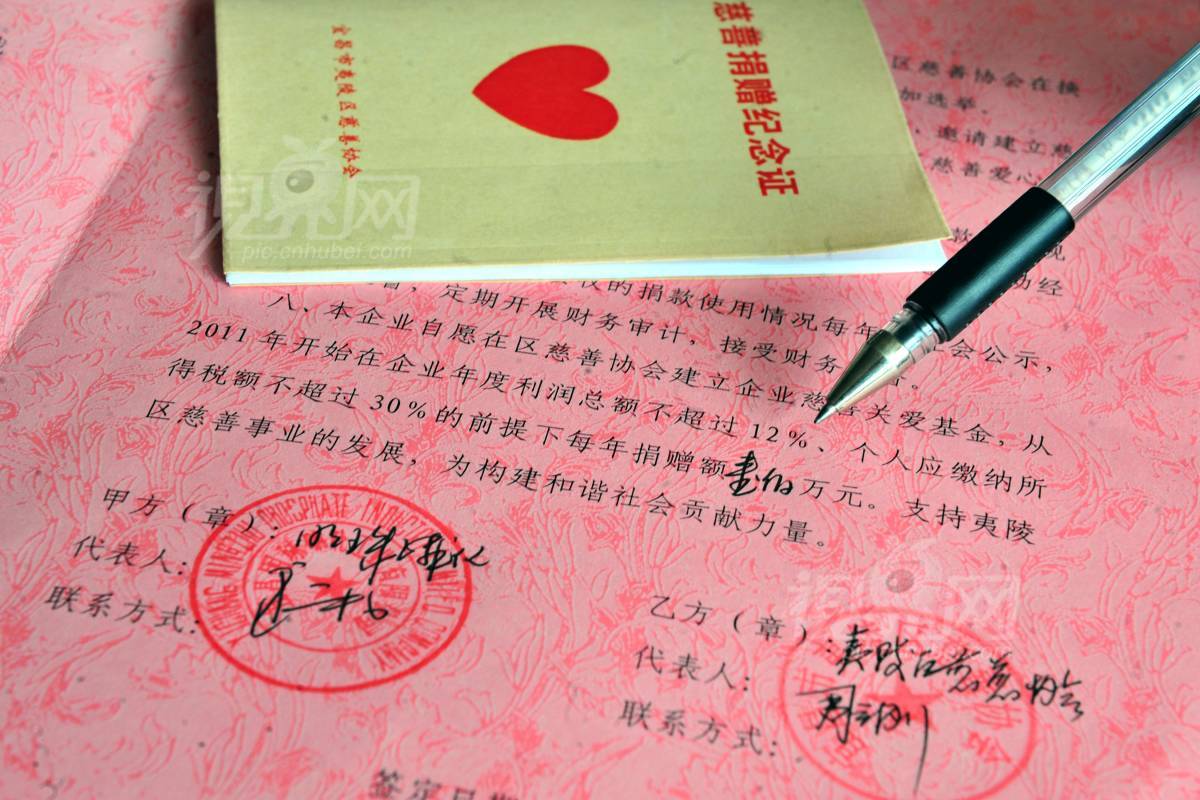 慈善捐赠纪念证
宜昌市夷陵区慈善协会
视界网
pic.cnhubei.com
区慈善协会在换
加选举。
，邀请建立慈
慈善爱心
款
的捐款使用情况每年 社会公示，
定期开展财务审计，接受财务
八、本企业自愿在区慈善协会建立企业慈善关爱基金，从
2011 年开始在企业年度利润总额不超过 12%、个人应缴纳所
得税额不超过 30%的前提下每年捐赠额壹佰万元。支持夷陵
区慈善事业的发展，为构建和谐社会贡献力量。
甲方（章）：
代表人：
联系方式：
PHOSPHATE
乙方（章）：夷陵区慈善协会
代表人：
联系方式：
签定日期